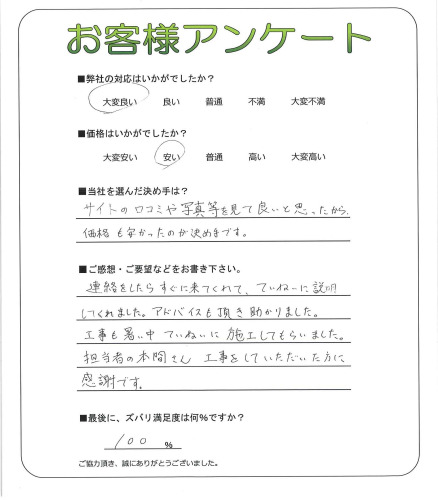 お客様アンケート
■弊社の対応はいかがでしたか?
大変良い 良い 普通 不満 大変不満
■価格はいかがでしたか?
大変安い 安い 普通 高い 大変高い
■当社を選んだ決め手は?
サイトの口コミや写真等を見て良いと思ったから、
価格も安かったのが決め手です。
■ご感想・ご要望などをお書き下さい。
連絡をしたらすぐに来てくれて、ていねいに説明
してくれました。アドバイスも頂き助かりました。
工事も暑い中ていねいに施工してもらいました。
担当者の本間さん 工事をしていただいた方に
感謝です。
■最後に、ズバリ満足度は何%ですか?
100 %
ご協力頂き、誠にありがとうございました。